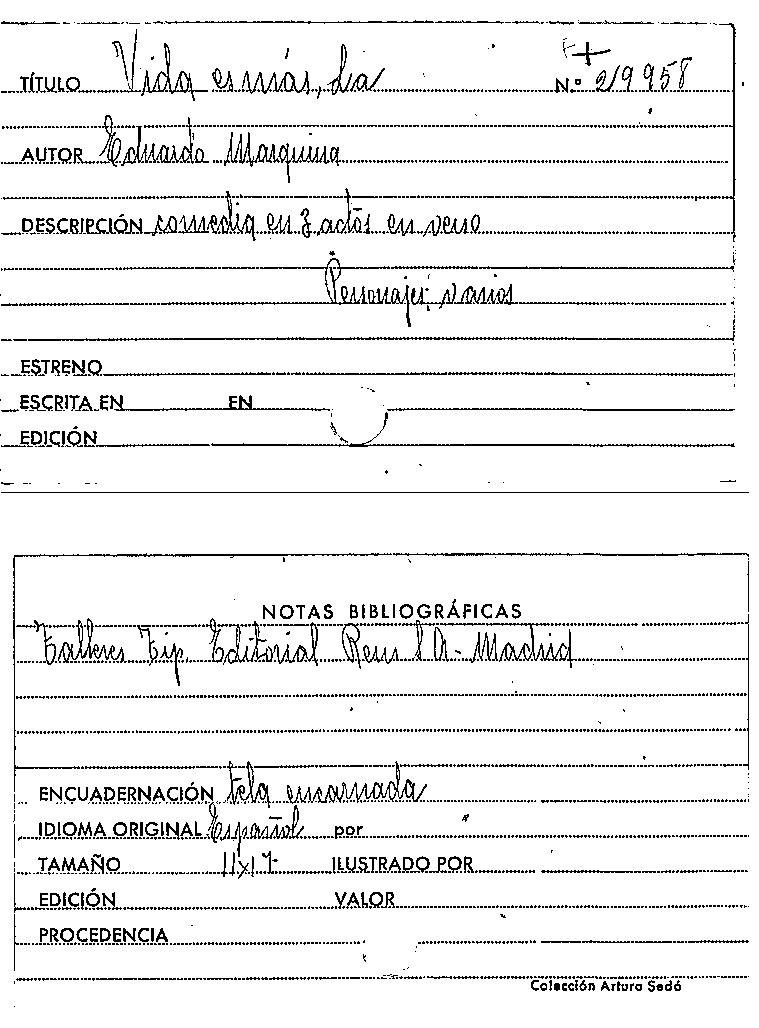 TÍTULO Vida es más, La N.º 219958
AUTOR Eduardo Marquina
DESCRIPCIÓN comedia en 3 actos en verso
Personajes: varios
ESTRENO
ESCRITA EN EN
EDICIÓN
NOTAS BIBLIOGRÁFICAS
Talleres Tip. Editorial Reus S A - Madrid
ENCUADERNACIÓN tela encarnada
IDIOMA ORIGINAL Español por
TAMAÑO 11x17 ILUSTRADO POR
EDICIÓN VALOR
PROCEDENCIA
Colección Arturo Sedó